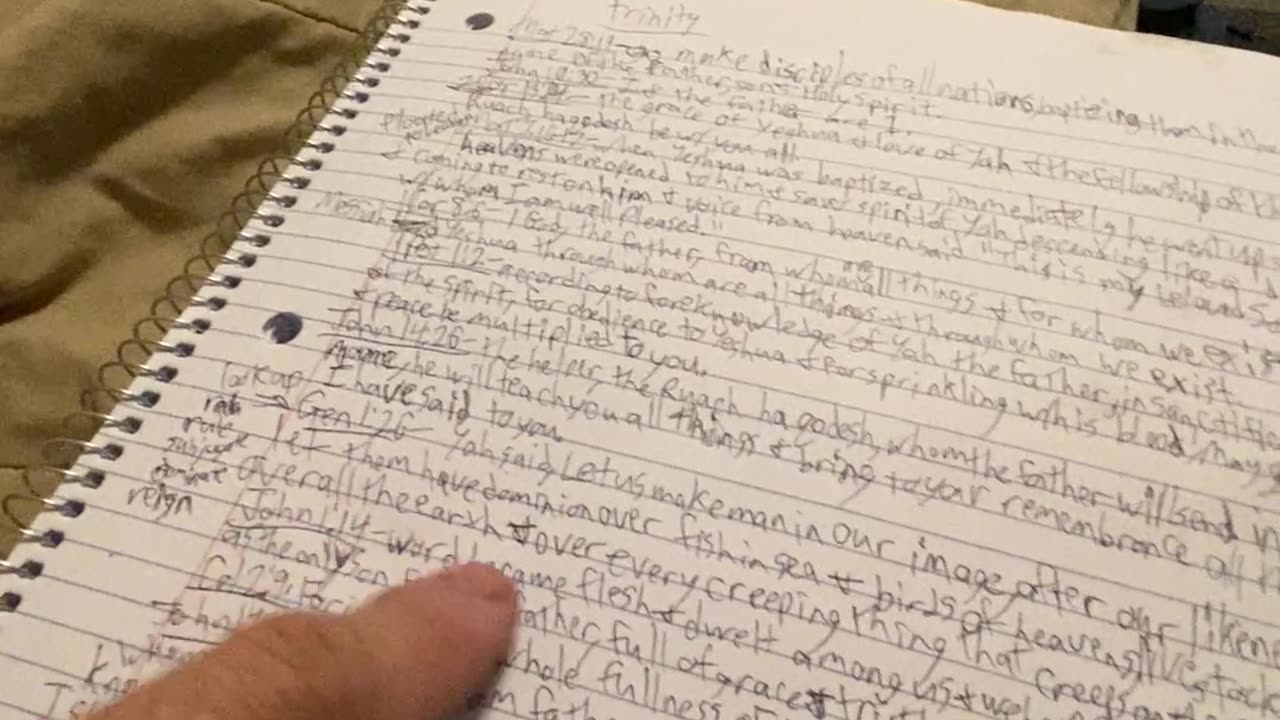 trinity
make disciples of all nations, baptizing them in
name of the Father, son & Holy Spirit.
John 10:30 - I & the father are 1.
the grace of Yeshua & love of Yah & the fellowship of th
Ruach hagodesh be w/ you all
when Yeshua was baptized, immediately he went up
heavens were opened to him & saw spirit of Yah descending like a d
& coming to rest on him & voice from heaven said "This is my beloved So
w/ whom I am well pleased."
Messiah 1 Cor 8:6 - 1 God, the father, from whom are all things & for whom we exist
Yeshua through whom are all things & through whom we exist.
1 Pet 1:2 - according to foreknowledge of Yah the father, in sanctific
of the spirit, for obedience to Yeshua & for sprinkling w/ his blood, may g
& peace be multiplied to you.
John 14:26 - the helper, the Ruach hagodesh, whom the father will send in
name, he will teach you all things & bring to your remembrance all t
I have said to you.
look up
Gen 1:26 - Yah said, Let us make man in our image after our liken
let them have dominion over fish in sea & birds of heavens, livestock
over all the earth & over every creeping thing that creeps on
subject
dominate
reign
John 1:14 - word came flesh & dwelt among us & we
as the only son father full of grace & tr
Col 2:9, For whole fullness
John
father